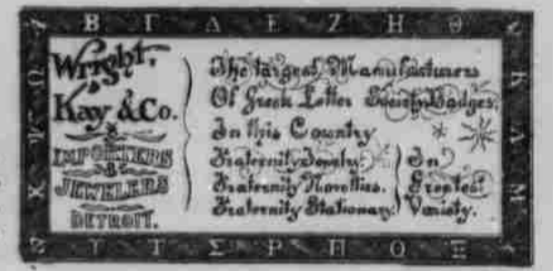 Α Β Γ Δ Ε Ζ Η Θ Ι
Wright,
Kay & Co.
IMPORTERS
&
JEWELERS
DETROIT.
The largest Manufacturers
Of Greek Letter Society Badges.
In this Country
Fraternity Jewelry.
Fraternity Novelties.
Fraternity Stationary.
In
Greatest
Variety.
Κ Λ Μ
Ξ Ο Π Ρ Σ Τ Υ
Χ Ψ Ω